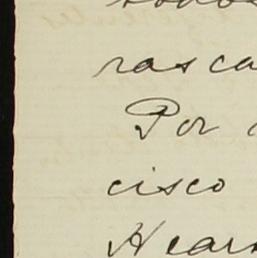 rasca
Por
cisco
Hears